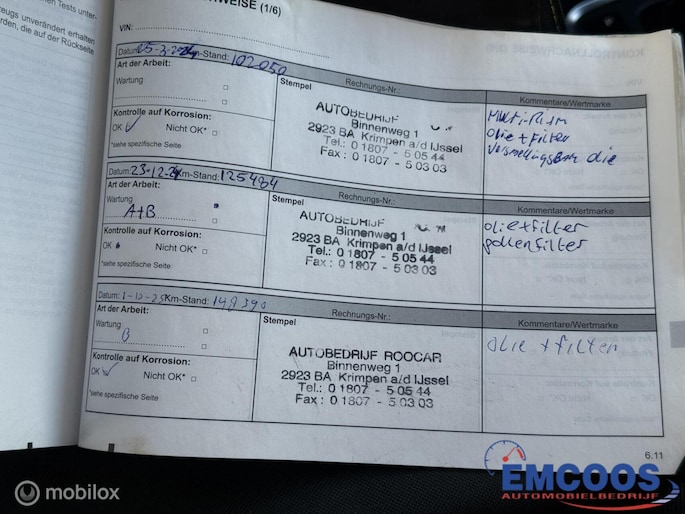 en Tests unter-
zeugs unverändert erhalten
rden, die auf der Rückseite
WEISE (1/6)
VIN:
Datum: 25-3-2024 Km-Stand: 102050
Art der Arbeit:
Rechnungs-Nr.:
Kommentare/Wertmarke
Wartung
Stempel
AUTOBEDRIJF
Binnenweg 1
2923 BA Krimpen a/d IJssel
Tel.: 0 1807 - 5 05 44
Fax : 0 1807 - 5 03 03
Multi-Riem
Olie + filter
olie
Kontrolle auf Korrosion:
OK Nicht OK*
*siehe spezifische Seite
Datum: 23-12-24 Km-Stand: 125484
Art der Arbeit:
Rechnungs-Nr.:
Kommentare/Wertmarke
Wartung
A+B
Stempel
AUTOBEDRIJF
Binnenweg 1
2923 BA Krimpen a/d IJssel
Tel.: 0 1807 - 5 05 44
Fax : 0 1807 - 5 03 03
olie+filter
pollenfilter
Kontrolle auf Korrosion:
OK Nicht OK*
*siehe spezifische Seite
Datum: 1-10-25 Km-Stand: 148390
Art der Arbeit:
Rechnungs-Nr.:
Kommentare/Wertmarke
Wartung
B
Stempel
AUTOBEDRIJF ROOCAR
Binnenweg 1
2923 BA Krimpen a/d IJssel
Tel.: 0 1807 - 5 05 44
Fax : 0 1807 - 5 03 03
olie + filter
Kontrolle auf Korrosion:
OK Nicht OK*
*siehe spezifische Seite
6.11
EMCOOS
AUTOMOBIELBEDRIJF
mobilox